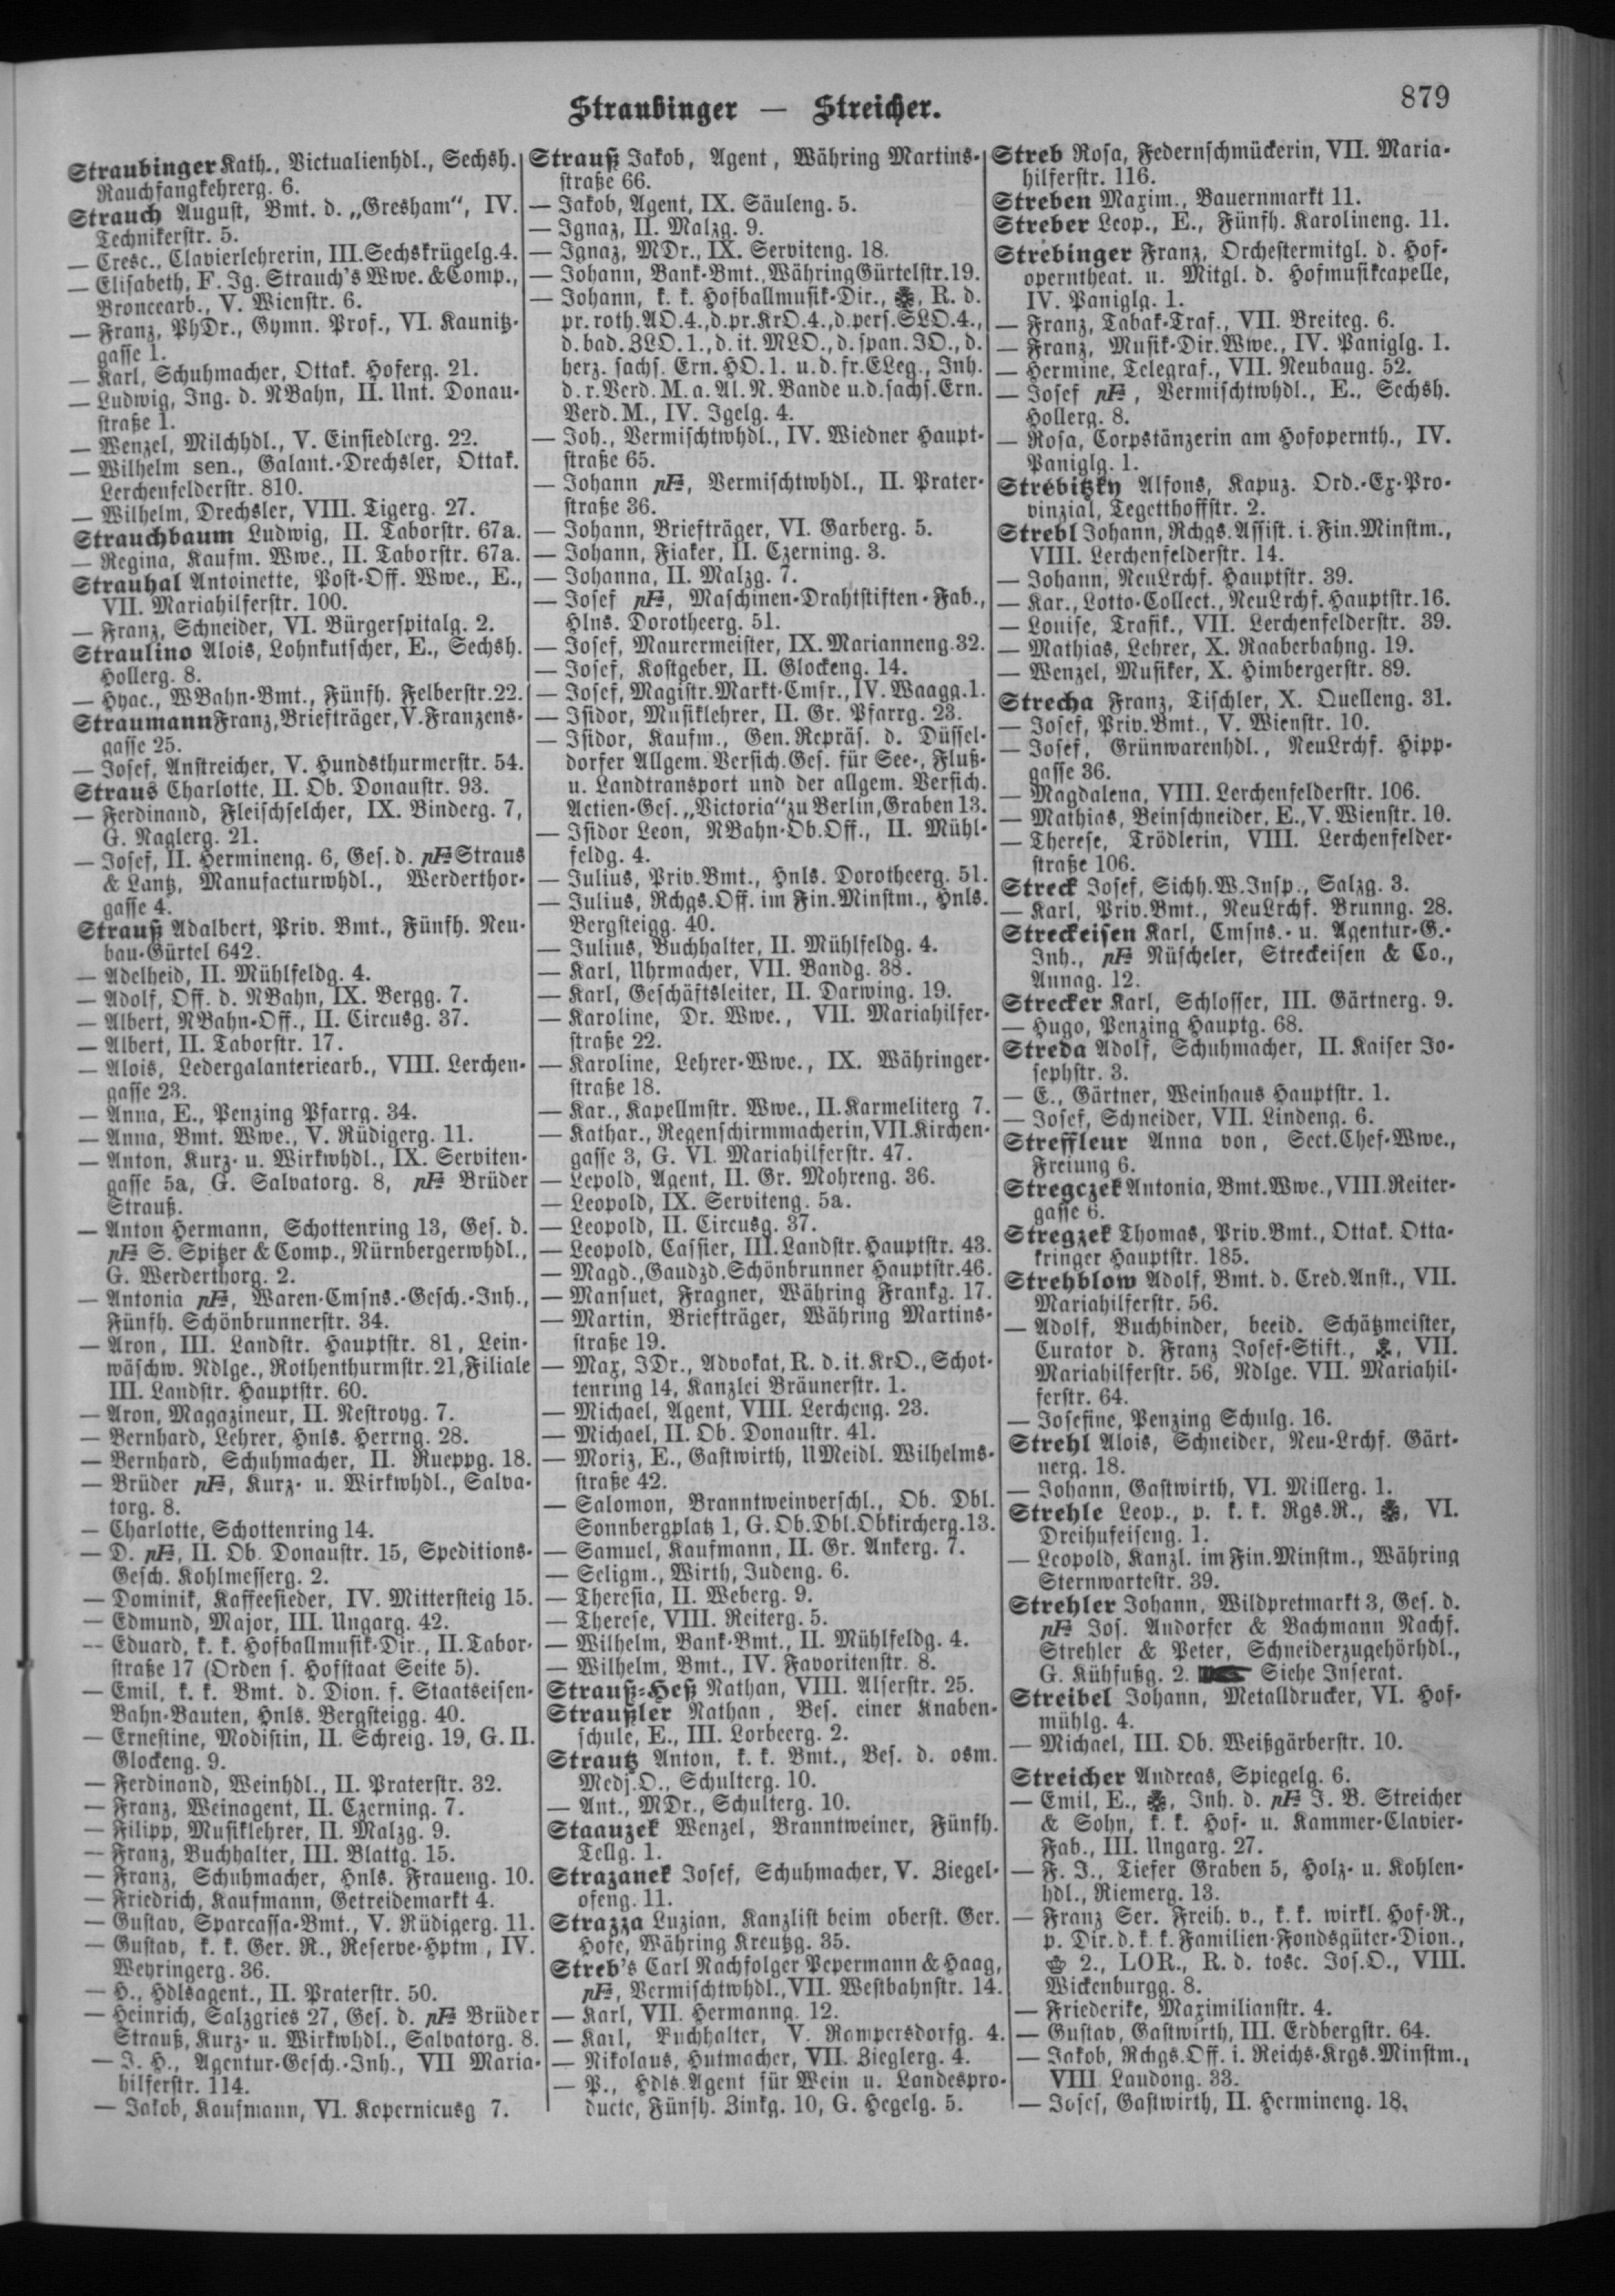 Straubinger — Streicher.
879
Straubinger Kath., Victualienhdl., Sechsh.
Rauchfangkehrerg. 6.
Strauch August, Bmt. d. „Gresham“, IV.
Technikerstr. 5.
— Cresc., Clavierlehrerin, III. Sechskrügelg. 4.
— Elisabeth, F. Ig. Strauch's Wwe. & Comp.,
Broncearb., V. Wienstr. 6.
— Franz, PhDr., Gymn. Prof., VI. Kaunitz-
gasse 1.
— Karl, Schuhmacher, Ottak. Hoferg. 21.
— Ludwig, Ing. d. NBahn, II. Unt. Donau-
straße 1.
— Wenzel, Milchhdl., V. Einsiedlerg. 22.
— Wilhelm sen., Galant.-Drechsler, Ottak.
Lerchenfelderstr. 810.
— Wilhelm, Drechsler, VIII. Tigerg. 27.
Strauchbaum Ludwig, II. Taborstr. 67a.
— Regina, Kaufm. Wwe., II. Taborstr. 67a.
Strauhal Antoinette, Post-Off. Wwe., E.,
VII. Mariahilferstr. 100.
— Franz, Schneider, VI. Bürgerspitalg. 2.
Straulino Alois, Lohnkutscher, E., Sechsh.
Hollerg. 8.
— Hyac., WBahn-Bmt., Fünfh. Felberstr. 22.
Straumann Franz, Briefträger, V. Franzens-
gasse 25.
— Josef, Anstreicher, V. Hundsthurmerstr. 54.
Straus Charlotte, II. Ob. Donaustr. 93.
— Ferdinand, Fleischselcher, IX. Binderg. 7,
G. Naglerg. 21.
— Josef, II. Hermineng. 6, Ges. d. pF Straus
& Lantz, Manufacturwhdl., Werderthor-
gasse 4.
Strauß Adalbert, Priv. Bmt., Fünfh. Neu-
bau-Gürtel 642.
— Adelheid, II. Mühlfeldg. 4.
— Adolf, Off. d. NBahn, IX. Bergg. 7.
— Albert, NBahn-Off., II. Circusg. 37.
— Albert, II. Taborstr. 17.
— Alois, Ledergalanteriearb., VIII. Lerchen-
gasse 23.
— Anna, E., Penzing Pfarrg. 34.
— Anna, Bmt. Wwe., V. Rüdigerg. 11.
— Anton, Kurz- u. Wirkwhdl., IX. Serviten-
gasse 5a, G. Salvatorg. 8, pF Brüder
Strauß.
— Anton Hermann, Schottenring 13, Ges. d.
pF S. Spitzer & Comp., Nürnbergerwhdl.,
G. Werderthorg. 2.
— Antonia pF, Waren-Cmsns.-Gesch.-Inh.,
Fünfh. Schönbrunnerstr. 34.
— Aron, III. Landstr. Hauptstr. 81, Lein-
wäschw. Ndlge., Rothenthurmstr. 21, Filiale
III. Landstr. Hauptstr. 60.
— Aron, Magazineur, II. Nestroyg. 7.
— Bernhard, Lehrer, Hnls. Herrng. 28.
— Bernhard, Schuhmacher, II. Rueppg. 18.
— Brüder pF, Kurz- u. Wirkwhdl., Salva-
torg. 8.
— Charlotte, Schottenring 14.
— D. pF, II. Ob. Donaustr. 15, Speditions-
Gesch. Kohlmesserg. 2.
— Dominik, Kaffeesieder, IV. Mittersteig 15.
— Edmund, Major, III. Ungarg. 42.
— Eduard, k. k. Hofballmusik-Dir., II. Tabor-
straße 17 (Orden s. Hofstaat Seite 5).
— Emil, k. k. Bmt. d. Dion. f. Staatseisen-
Bahn-Bauten, Hnls. Bergsteigg. 40.
— Ernestine, Modistin, II. Schreig. 19, G. II.
Glockeng. 9.
— Ferdinand, Weinhdl., II. Praterstr. 32.
— Franz, Weinagent, II. Czerning. 7.
— Filipp, Musiklehrer, II. Malzg. 9.
— Franz, Buchhalter, III. Blattg. 15.
— Franz, Schuhmacher, Hnls. Fraueng. 10.
— Friedrich, Kaufmann, Getreidemarkt 4.
— Gustav, Sparcassa-Bmt., V. Rüdigerg. 11.
— Gustav, k. k. Ger. R., Reserve-Hptm, IV.
Weyringerg. 36.
— H., Hdlsagent., II. Praterstr. 50.
— Heinrich, Salzgries 27, Ges. d. pF Brüder
Strauß, Kurz- u. Wirkwhdl., Salvatorg. 8.
— J. H., Agentur-Gesch.-Inh., VII Maria-
hilferstr. 114.
— Jakob, Kaufmann, VI. Kopernicusg 7.
Strauß Jakob, Agent, Währing Martins-
straße 66.
— Jakob, Agent, IX. Säuleng. 5.
— Ignaz, II. Malzg. 9.
— Ignaz, MDr., IX. Serviteng. 18.
— Johann, Bank-Bmt., Währing Gürtelstr. 19.
— Johann, k. k. Hofballmusik-Dir., R. d.
pr. roth. AO. 4., d. pr. KrO. 4., d. pers. SLO. 4.,
d. bad. ZLO. 1., d. it. MLO., d. span. JO., d.
herz. sachs. Ern. HO. 1. u. d. fr. ELeg., Inh.
d. r. Verd. M. a. Al. N. Bande u. d. sachs. Ern.
Verd. M., IV. Igelg. 4.
— Joh., Vermischtwhdl., IV. Wiedner Haupt-
straße 65.
— Johann pF, Vermischtwhdl., II. Prater-
straße 36.
— Johann, Briefträger, VI. Garberg. 5.
— Johann, Fiaker, II. Czerning. 3.
— Johanna, II. Malzg. 7.
— Josef pF, Maschinen-Drahtstiften-Fab.,
Hlns. Dorotheerg. 51.
— Josef, Maurermeister, IX. Marianneng. 32.
— Josef, Kostgeber, II. Glockeng. 14.
— Josef, Magistr. Markt-Cmsr., IV. Waagg. 1.
— Isidor, Musiklehrer, II. Gr. Pfarrg. 23.
— Isidor, Kaufm., Gen. Repräs. d. Düssel-
dorfer Allgem. Versich. Ges. für See-, Fluß-
u. Landtransport und der allgem. Versich.
Actien-Ges. „Victoria“ zu Berlin, Graben 13.
— Isidor Leon, NBahn-Ob. Off., II. Mühl-
feldg. 4.
— Julius, Priv. Bmt., Hnls. Dorotheerg. 51.
— Julius, Rchgs. Off. im Fin. Minstm., Hnls.
Bergsteigg. 40.
— Julius, Buchhalter, II. Mühlfeldg. 4.
— Karl, Uhrmacher, VII. Bandg. 38.
— Karl, Geschäftsleiter, II. Darwing. 19.
— Karoline, Dr. Wwe., VII. Mariahilfer-
straße 22.
— Karoline, Lehrer-Wwe., IX. Währinger-
straße 18.
— Kar., Kapellmstr. Wwe., II. Karmeliterg 7.
— Kathar., Regenschirmmacherin, VII. Kirchen-
gasse 3, G. VI. Mariahilferstr. 47.
— Lepold, Agent, II. Gr. Mohreng. 36.
— Leopold, IX. Serviteng. 5a.
— Leopold, II. Circusg. 37.
— Leopold, Cassier, III. Landstr. Hauptstr. 43.
— Magd., Gaudzd. Schönbrunner Hauptstr. 46.
— Mansuet, Fragner, Währing Frankg. 17.
— Martin, Briefträger, Währing Martins-
straße 19.
— Max, JDr., Advokat, R. d. it. KrO., Schot-
tenring 14, Kanzlei Bräunerstr. 1.
— Michael, Agent, VIII. Lercheng. 23.
— Michael, II. Ob. Donaustr. 41.
— Moriz, E., Gastwirth, UMeidl. Wilhelms-
straße 42.
— Salomon, Branntweinverschl., Ob. Dbl.
Sonnbergplatz 1, G. Ob. Dbl. Obkircherg. 13.
— Samuel, Kaufmann, II. Gr. Ankerg. 7.
— Seligm., Wirth, Judeng. 6.
— Theresia, II. Weberg. 9.
— Therese, VIII. Reiterg. 5.
— Wilhelm, Bank-Bmt., II. Mühlfeldg. 4.
— Wilhelm, Bmt., IV. Favoritenstr. 8.
Strauß-Heß Nathan, VIII. Alserstr. 25.
Straußler Nathan, Bes. einer Knaben-
schule, E., III. Lorbeerg. 2.
Strautz Anton, k. k. Bmt., Bes. d. osm.
Medj. O., Schulterg. 10.
— Ant., MDr., Schulterg. 10.
Staauzek Wenzel, Branntweiner, Fünfh.
Tellg. 1.
Strazanek Josef, Schuhmacher, V. Ziegel-
ofeng. 11.
Strazza Luzian, Kanzlist beim oberst. Ger.
Hofe, Währing Kreutzg. 35.
Streb's Carl Nachfolger Pepermann & Haag,
pF, Vermischtwhdl., VII. Westbahnstr. 14.
— Karl, VII. Hermanng. 12.
— Karl, Buchhalter, V. Rampersdorfg. 4.
— Nikolaus, Hutmacher, VII. Zieglerg. 4.
— P., Hdls. Agent für Wein u. Landespro-
ducte, Fünfh. Zinkg. 10, G. Hegelg. 5.
Streb Rosa, Federnschmückerin, VII. Maria-
hilferstr. 116.
Streben Maxim., Bauernmarkt 11.
Streber Leop., E., Fünfh. Karolineng. 11.
Strebinger Franz, Orchestermitgl. d. Hof-
operntheat. u. Mitgl. d. Hofmusikcapelle,
IV. Paniglg. 1.
— Franz, Tabak-Traf., VII. Breiteg. 6.
— Franz, Musik-Dir. Wwe., IV. Paniglg. 1.
— Hermine, Telegraf., VII. Neubaug. 52.
— Josef pF, Vermischtwhdl., E., Sechsh.
Hollerg. 8.
— Rosa, Corpstänzerin am Hofopernth., IV.
Paniglg. 1.
Strebitzky Alfons, Kapuz. Ord.-Ex-Pro-
vinzial, Tegetthoffstr. 2.
Strebl Johann, Rchgs. Assist. i. Fin. Minstm.,
VIII. Lerchenfelderstr. 14.
— Johann, NeuLrchf. Hauptstr. 39.
— Kar., Lotto-Collect., NeuLrchf. Hauptstr. 16.
— Louise, Trafik., VII. Lerchenfelderstr. 39.
— Mathias, Lehrer, X. Raaberbahng. 19.
— Wenzel, Musiker, X. Himbergerstr. 89.
Strecha Franz, Tischler, X. Quelleng. 31.
— Josef, Priv. Bmt., V. Wienstr. 10.
— Josef, Grünwarenhdl., NeuLrchf. Hipp-
gasse 36.
— Magdalena, VIII. Lerchenfelderstr. 106.
— Mathias, Beinschneider, E., V. Wienstr. 10.
— Therese, Trödlerin, VIII. Lerchenfelder-
straße 106.
Streck Josef, Sichh. W. Insp., Salzg. 3.
— Karl, Priv. Bmt., NeuLrchf. Brunng. 28.
Streckeisen Karl, Cmsns.- u. Agentur-G.-
Inh., pF Nüscheler, Streckeisen & Co.,
Annag. 12.
Strecker Karl, Schlosser, III. Gärtnerg. 9.
— Hugo, Penzing Hauptg. 68.
Streda Adolf, Schuhmacher, II. Kaiser Jo-
sephstr. 3.
— E., Gärtner, Weinhaus Hauptstr. 1.
— Josef, Schneider, VII. Lindeng. 6.
Streffleur Anna von, Sect. Chef-Wwe.,
Freiung 6.
Stregczek Antonia, Bmt. Wwe., VIII. Reiter-
gasse 6.
Stregzek Thomas, Priv. Bmt., Ottak. Otta-
kringer Hauptstr. 185.
Strehblow Adolf, Bmt. d. Cred. Anst., VII.
Mariahilferstr. 56.
— Adolf, Buchbinder, beeid. Schätzmeister,
Curator d. Franz Josef-Stift., VII.
Mariahilferstr. 56, Ndlge. VII. Mariahil-
ferstr. 64.
— Josefine, Penzing Schulg. 16.
Strehl Alois, Schneider, Neu-Lrchf. Gärt-
nerg. 18.
— Johann, Gastwirth, VI. Millerg. 1.
Strehle Leop., p. k. k. Rgs. R., VI.
Dreihufeiseng. 1.
— Leopold, Kanzl. im Fin. Minstm., Währing
Sternwartestr. 39.
Strehler Johann, Wildpretmarkt 3, Ges. d.
pF Jos. Andorfer & Bachmann Nachf.
Strehler & Peter, Schneiderzugehörhdl.,
G. Kühfußg. 2. Siehe Inserat.
Streibel Johann, Metalldrucker, VI. Hof-
mühlg. 4.
— Michael, III. Ob. Weißgärberstr. 10.
Streicher Andreas, Spiegelg. 6.
— Emil, E., Inh. d. pF J. B. Streicher
& Sohn, k. k. Hof- u. Kammer-Clavier-
Fab., III. Ungarg. 27.
— F. J., Tiefer Graben 5, Holz- u. Kohlen-
hdl., Riemerg. 13.
— Franz Ser. Freih. v., k. k. wirkl. Hof-R.,
p. Dir. d. k. k. Familien-Fondsgüter-Dion.,
2., LOR., R. d. tosc. Jos. O., VIII.
Wickenburgg. 8.
— Friederike, Maximilianstr. 4.
— Gustav, Gastwirth, III. Erdbergstr. 64.
— Jakob, Rchgs. Off. i. Reichs-Krgs. Minstm.,
VIII Laudong. 33.
— Josef, Gastwirth, II. Hermineng. 18.